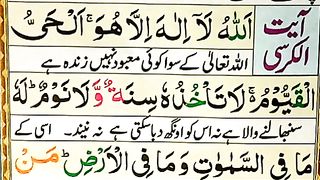 آیت الکرسی
اَللّٰهُ لَاۤ اِلٰهَ اِلَّا هُوَ ۚ اَلْحَیُّ
اللہ تعالیٰ کے سوا کوئی معبود نہیں زندہ ہے
الْقَیُّوْمُ ۚ لَا تَاْخُذُهٗ سِنَةٌ وَّلَا نَوْمٌ ؕ لَهٗ
سنبھالنے والا ہے نہ اس کو اونگھ دبا سکتی ہے نہ نیند اسی کے
مَا فِی السَّمٰوٰتِ وَمَا فِی الْاَرْضِ ؕ مَنْ